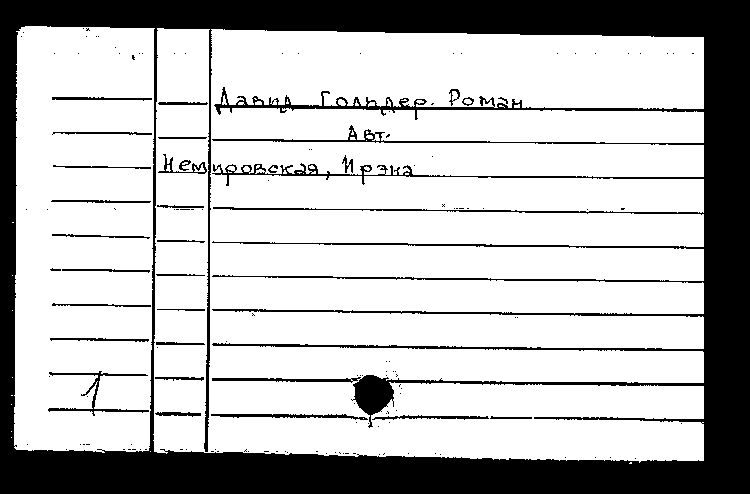 Давид Гольдер. Роман
Авт.
Немировская, Ирэна
1